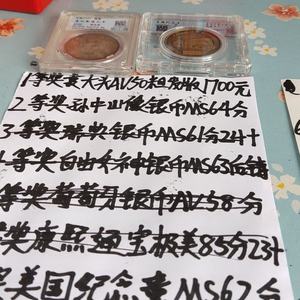 1等奖袁大头AU50粗发版1700元
2等奖孙中山像银币MS64分
3等奖瑞典银币MS61分24+
4等奖自由女神银币MS63
等奖葡萄牙银币AU58分
奖康熙通宝极美85分23+
美国纪念章MS67分